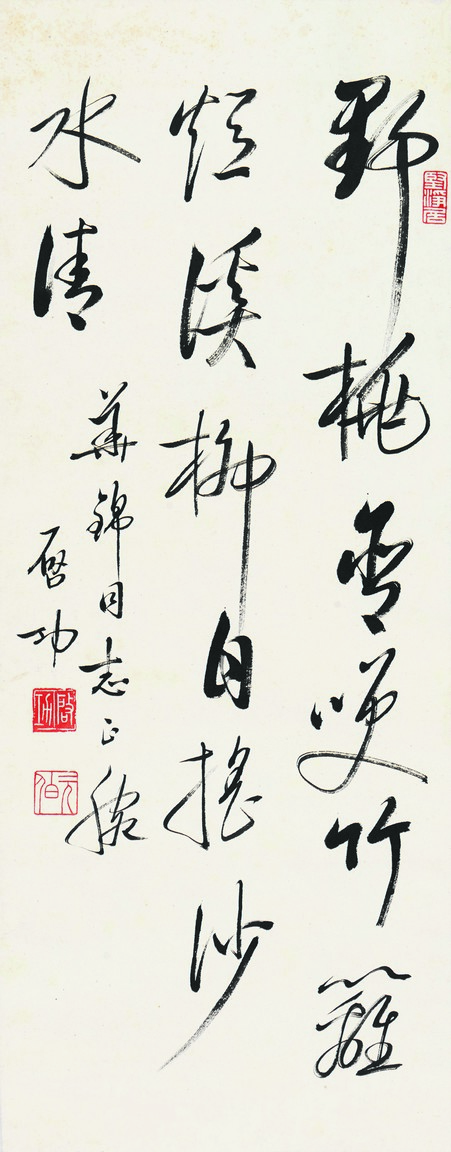 野桃含咲竹籬
短溪柳自搖沙
水清
華錦同志正腕
啓功
堅淨居
啓功
元伯